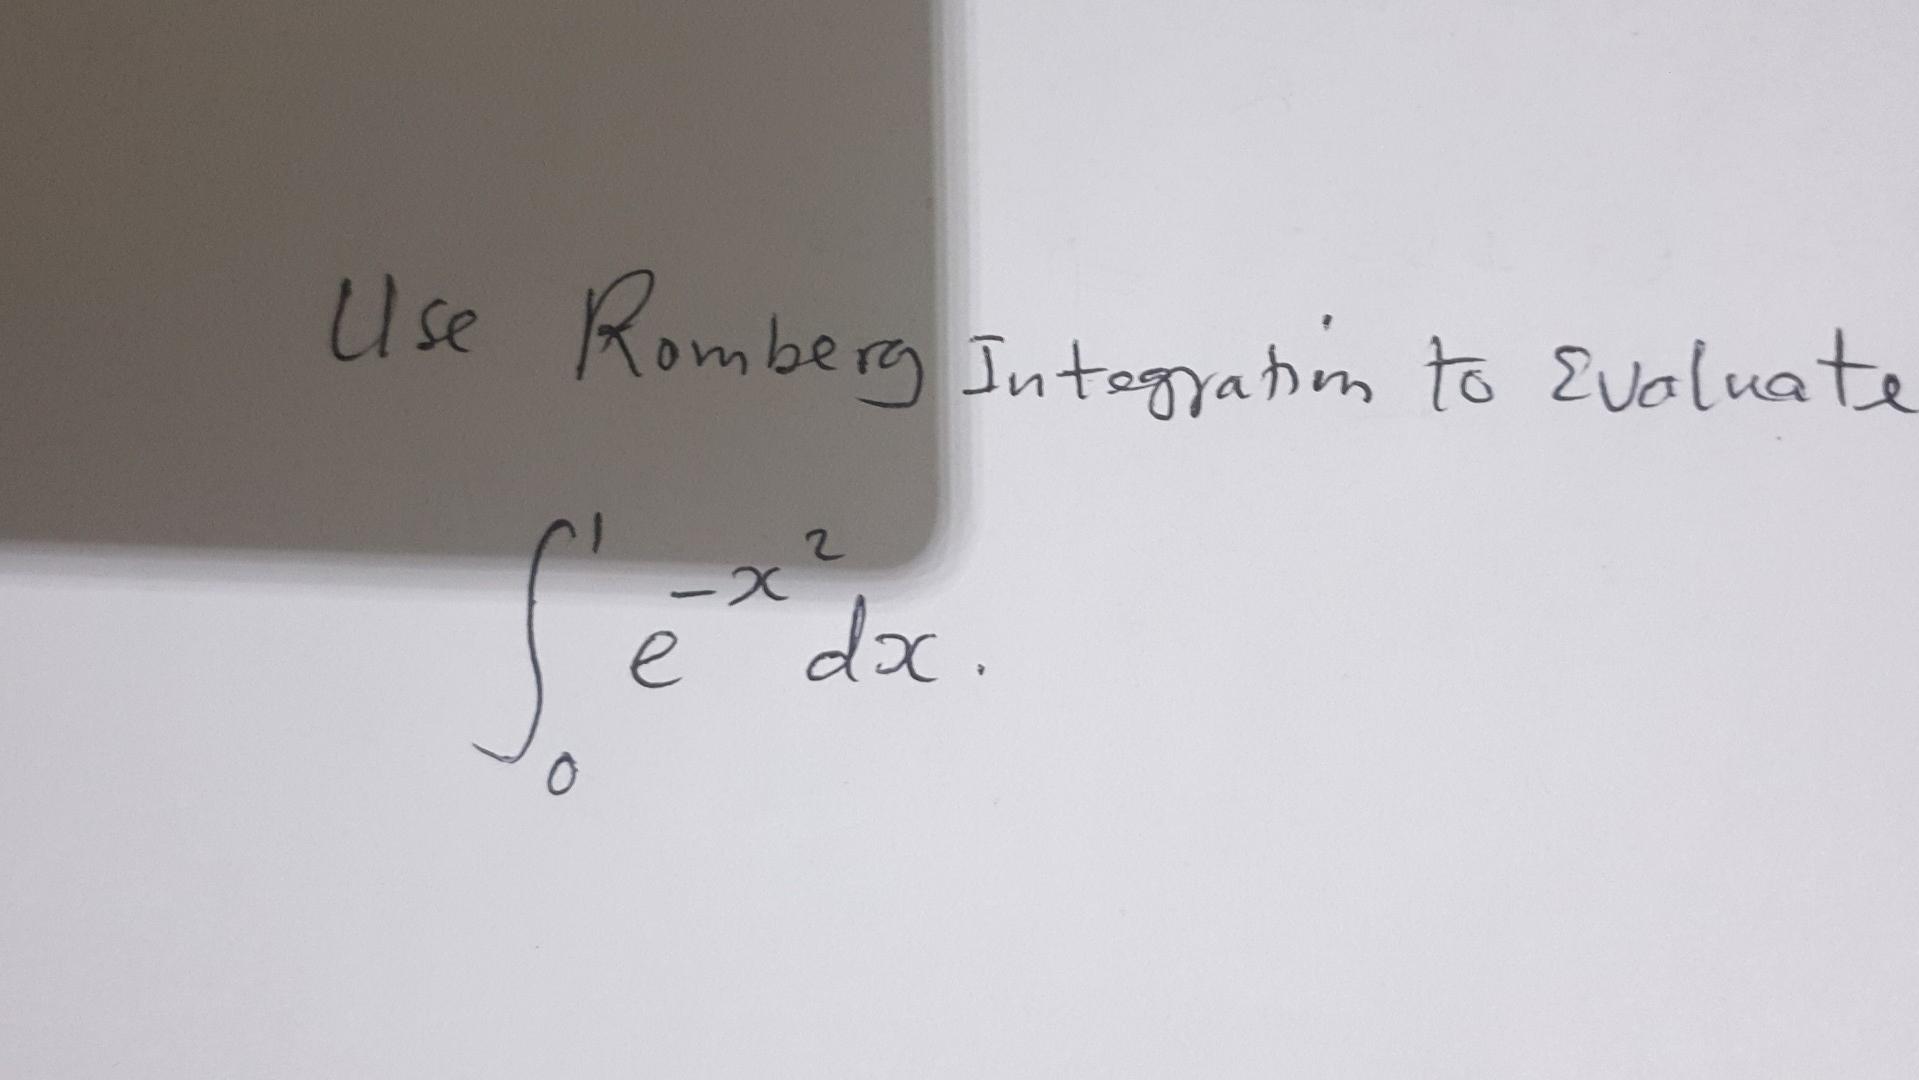 Use Romberg Integration to Evaluate
∫₀¹ e^{-x²} dx.